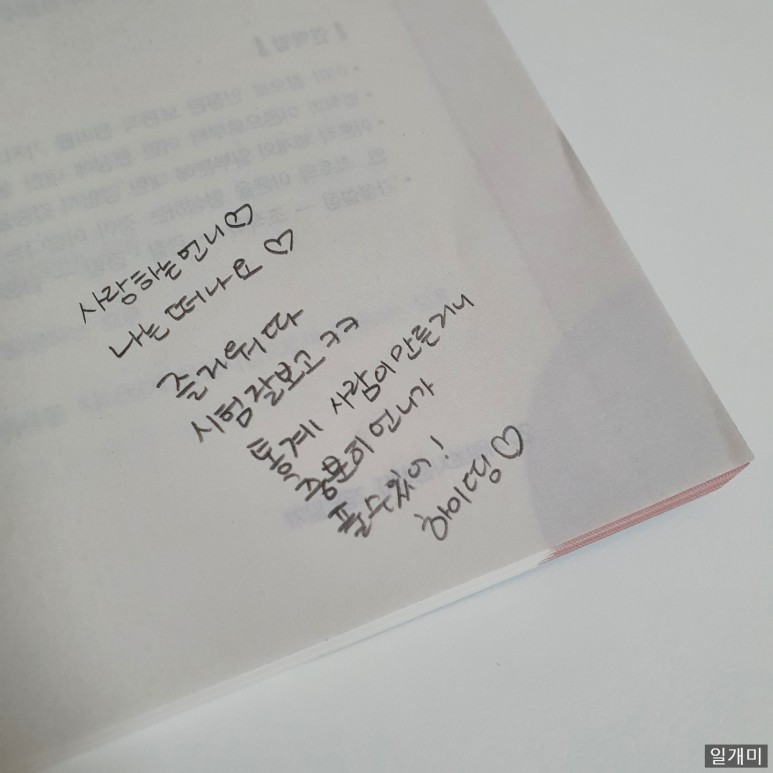 사랑하는언니♡
나는 떠나요 ♡
즐거워따
시험잘보고ㅋㅋ
통계 사람이만든거니
충분히 언니가
풀수있어!
하이띵♡
일개미